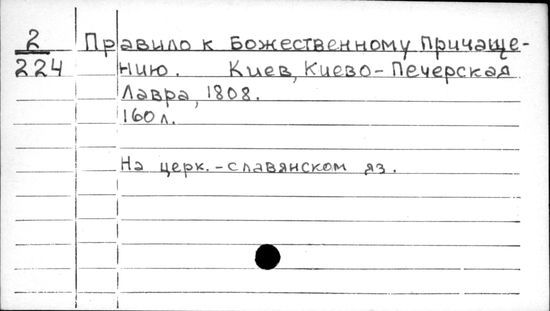 2 Правило к Божественному Причаще-
224 нию. Киев, Киево-Печерская
Лавра, 1808.
160 л.
На церк.-славянском яз.